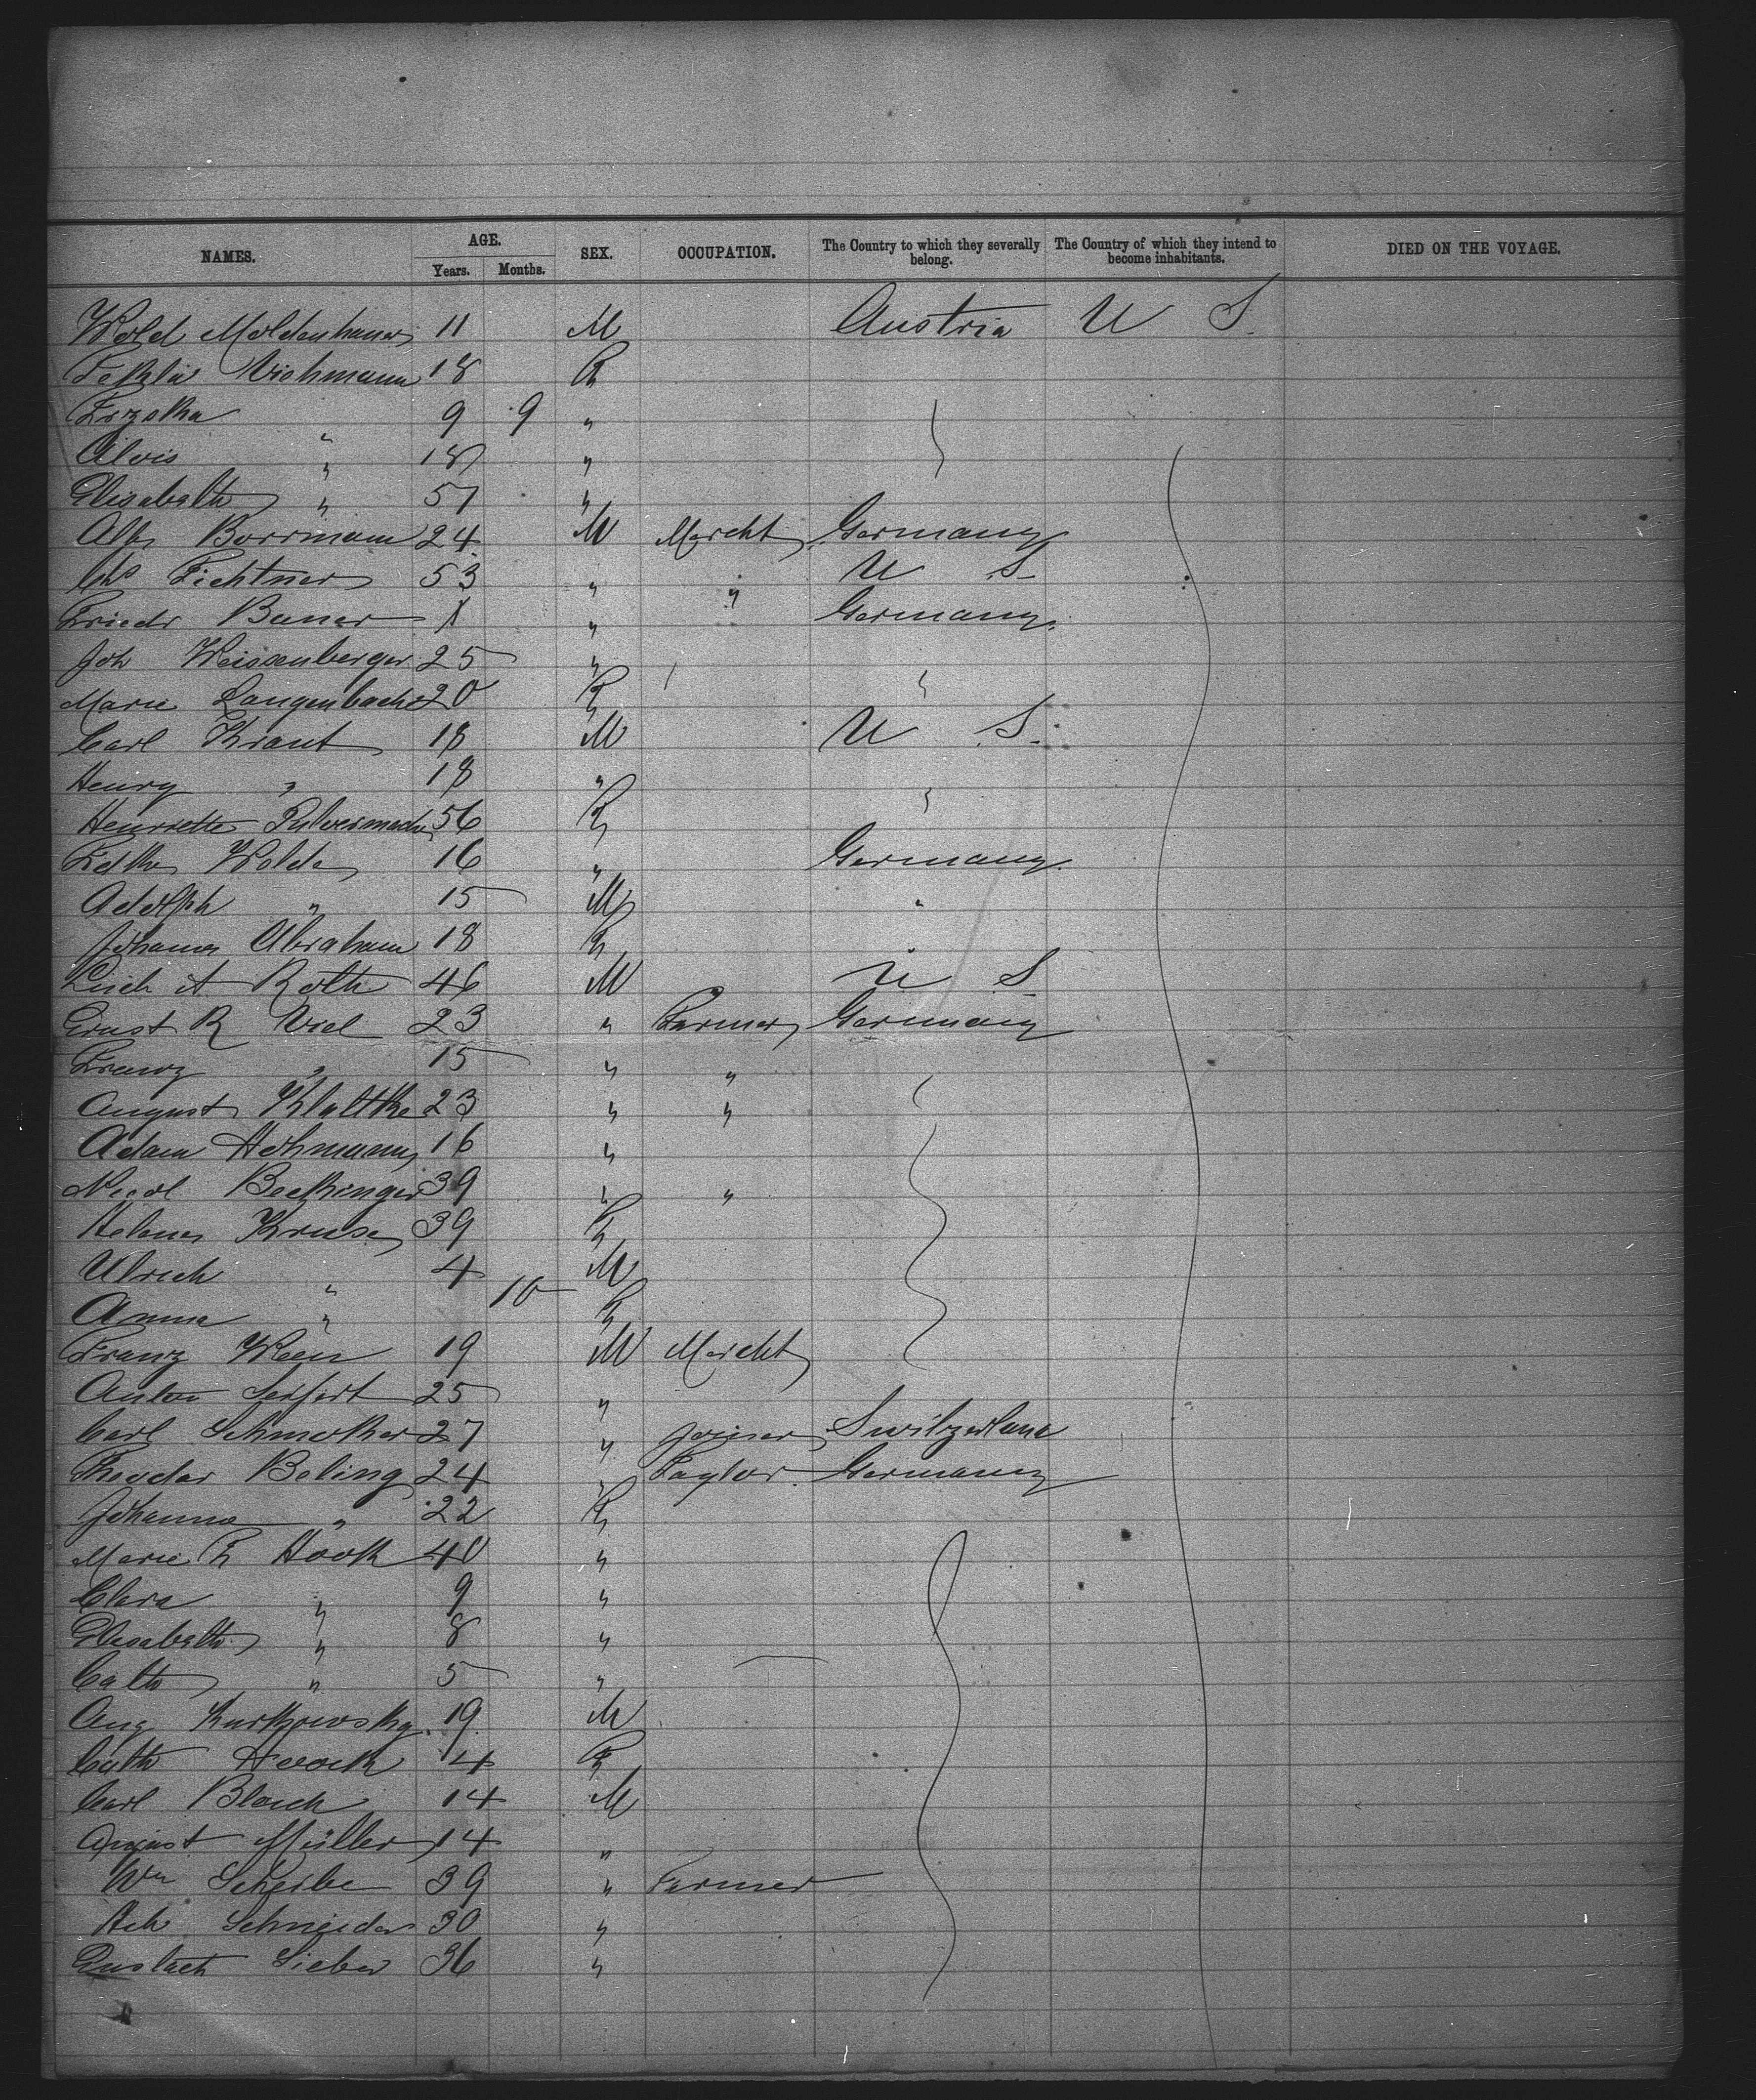 NAMES. AGE. Years. Months. SEX. OCCUPATION. The Country to which they severally belong. The Country of which they intend to become inhabitants. DIED ON THE VOYAGE.
Wold Moldenhauer 11 M Austria U S.
Wichmann 18
9 9 "
Alois " 18 "
Elisabeth " 57 "
Borrmann 24 M Mercht Germany
Chs Fichtner 53 " " U S
Friedr Bauer " Germany
Joh Weissenberger 25 "
Marie Langenbach 20
Carl Kraut 18 M U S.
Henry " 18 "
Henriette Pulvermacher 56
Wolde 16 " Germany
Adolph " 15 M "
Abraham 18 "
A Roth 46 M U S
Ernst R Viel 23 " Farmer Germany
Franz " 15 " "
August Klattke 23 " "
Adam Hohmann 16 "
Beckinger 39 " "
Helene Kruse 39
Ulrich " 4 M
Anna " 10
Franz 19 M Mercht
Anton Seifert 25 "
Carl Schmocker 27 " Joiner Switzerland
Theodor Beling 24 " Taylor Germany
Johanna " 22
Marie Hook 40 "
Clara " 9 "
Elisabeth " 8 "
Cath " 5 "
Aug 19 M
Cath 14
Carl Block 14 M
August Müller 14 "
Wm Scheibe 39 " Farmer
Schneider 30 "
Sieber 36 "